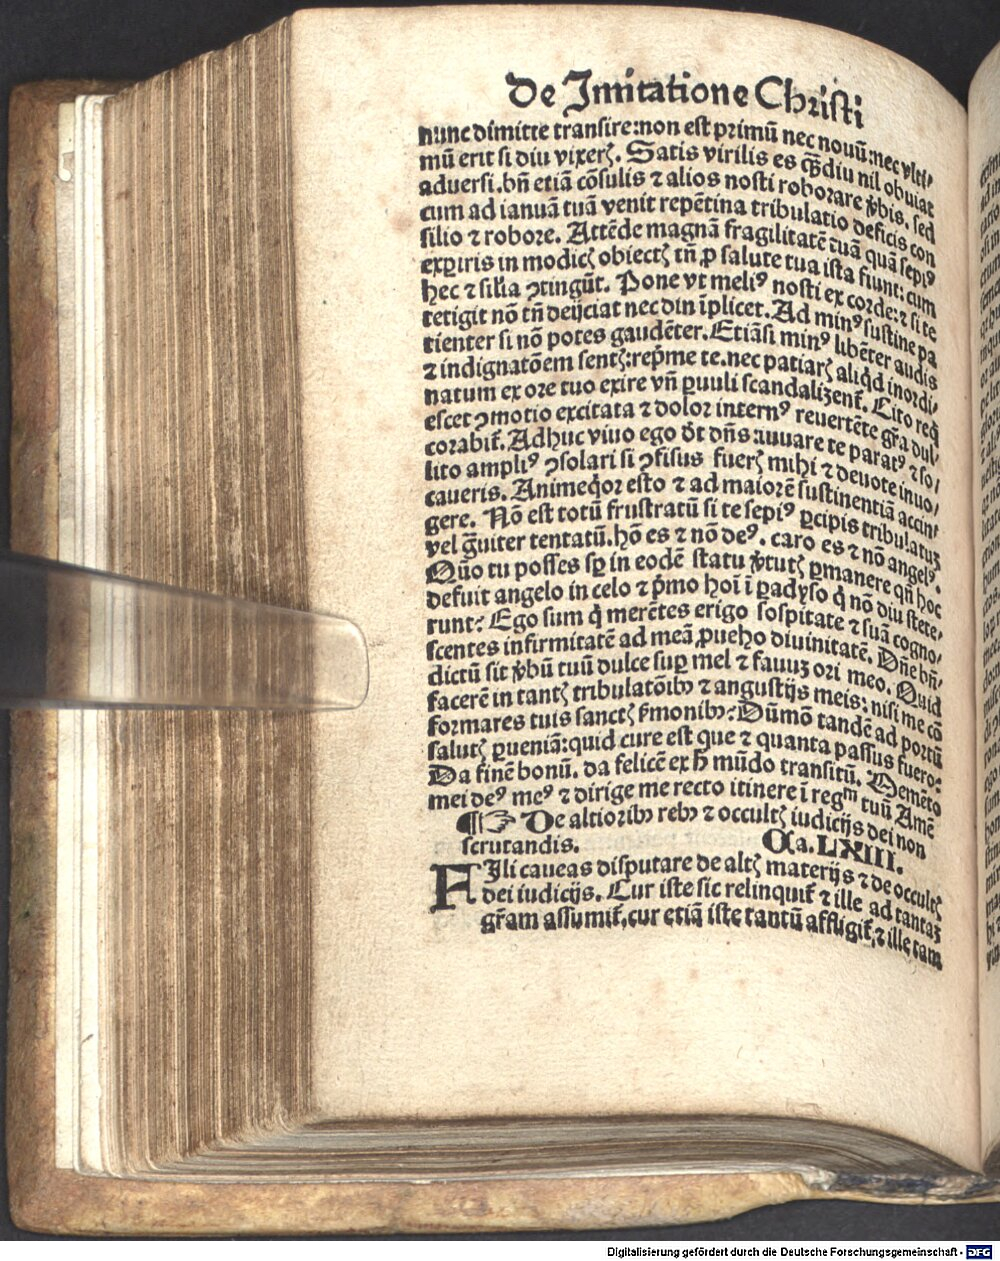 De Imitatione Christi
nunc dimitte transire:non est primū nec novū:nec vlti/
mū erit si diu vixerꝭ. Satis virilis es qͣ̄diu nil obuiat
aduersi.bn̄ etiā cōsulis ⁊ alios nosti roborare v̓bis. sed
cum ad ianuā tuā venit repētina tribulatio deficis con
silio ⁊ robore. Attēde magnā fragilitatē tuā quā sepiꝰ
exꝑiris in modicꝭ obiectꝭ tn̄ ꝓ salute tua ista fiunt: cum
hec ⁊ silia ꝯtingūt. Pone vt meliꝰ nosti ex corde:⁊ si te
tetigit nō tn̄ deijciat nec diu īplicet. Ad minꝰ sustine pa
tienter si nō potes gaudēter. Etiāsi minꝰ libēter audis
⁊ indignatōem sentꝭ:rep̄me te.nec patiarꝭ aliq̇d inordi/
natum ex ore tuo exire vn̄ ꝑuuli scandalizent̄. Cito req̇
escet ꝯmotio excitata ⁊ dolor internꝰ reuertēte gr̄a dul/
corabit̄. Adhuc viuo ego dt̄ dn̄s:iuuare te paratꝰ ⁊ so/
lito ampliꝰ ꝯsolari si ꝯfisus fuerꝭ mihi ⁊ deuote inuo/
caueris. Animeq̇or esto ⁊ ad maiorē sustinentiā accin/
gere. Nō est totū frustratū si te sepiꝰ ꝑcipis tribulatuꝫ
vel ḡuiter tentatū.hō es ⁊ nō deꝰ. caro es ⁊ nō angelꝰ.
Quō tu posses sꝑ in eodē statu v̓tutꝭ ꝑmanere qn̄ hoc
defuit angelo in celo ⁊ p̓mo hoī ī ꝑadyso q̇ nō diu stete/
runt: Ego sum q̇ merētes erigo sospitate ⁊ suā cogno/
scentes infirmitatē ad meā ꝓueho diuinitatē. Dn̄e bn̄/
dictū sit v̓bū tuū dulce suꝑ mel ⁊ fauuꝫ ori meo. Quid
facerē in tantꝭ tribulatōibꝰ ⁊ angustijs meis: nisi me cō
formares tuis sanctꝭ s̓monibꝰ: Dūmō tandē ad portū
salutꝭ ꝑueniā:quid cure est que ⁊ quanta passus fuero:
Da finē bonū. da felicē ex h̄ mūdo transitū. Memēto
mei deꝰ meꝰ ⁊ dirige me recto itinere ī regᵐ tuū Amē
¶☞ De altioribꝰ rebꝰ ⁊ occultꝭ iudicijs dei non
scrutandis. Ca. LXIII.
FIli caueas disputare de altꝭ materijs ⁊ de occultꝭ
dei iudicijs. Cur iste sic relinquit̄ ⁊ ille ad tantaꝫ
gr̄am assumit̄.cur etiā iste tantū affligit̄,⁊ ille tam
Digitalisierung gefördert durch die Deutsche Forschungsgemeinschaft - DFG